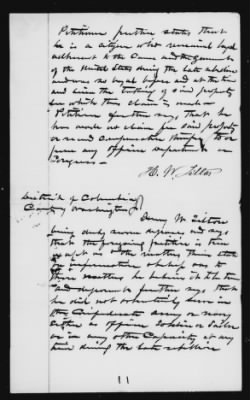 Petitioner further states that
he is a citizen who remained loyal
adherent to the Cause and the Government
of the United States during the late rebellion
and was so loyal before and at the time
and since the taking of said property
for which this claim is made —
Petitioner further says that he
has made no claim for said property
or received compensation therefor
from any officer Department or
Congress —
H. W. Tilton
District of Columbia
County Washington
Henry W Tilton
being duly sworn deposes and says
that the foregoing petition is true
except as to the matters therein stated
on information and belief and as to
these matters he believes it to be true
and deponent further says that
he did not voluntarily serve in
the Confederate army or navy
either as officer soldier or sailor
or in any other Capacity at any
time during the late rebellion
11